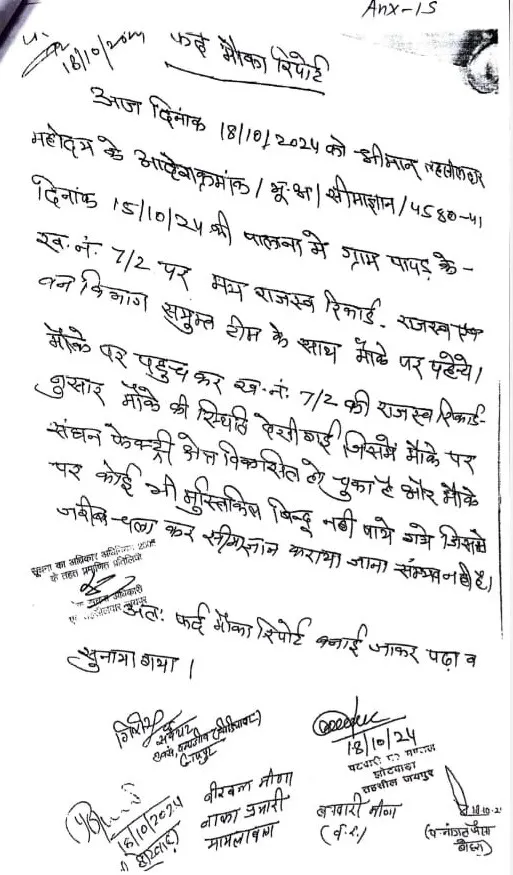 Anx-15
18/10/2024
फर्द मौका रिपोर्ट
आज दिनांक 18/10/2024 को श्रीमान् तहसीलदार
महोदय के आदेश क्रमांक / भू.अ / सीमाज्ञान / 4580-41
दिनांक 15/10/24 की पालना में ग्राम पापड़ के -
ख. नं. 7/2 पर मय राजस्व रिकार्ड. राजस्व एवं
वन विभाग संयुक्त टीम के साथ मौके पर पहुंचे।
मौके पर पहुंच कर ख. नं. 7/2 की राजस्व रिकार्ड-
नुसार मौके की स्थिति देखी गई जिसमें मौके पर
संघन फेक्ट्री क्षेत्र विकसित हो चुका है और मौके
पर कोई भी मुस्तकिल बिन्दू नहीं पाये गये जिससे
जरीब चला कर सीमाज्ञान कराया जाना संम्भव नहीं है।
सूचना का अधिकार अधिनियम 2005
के तहत प्रमाणित प्रतिलिपी
सूचना अधिकारी
जयपुर
अतः फर्द मौका रिपोर्ट बनाई जाकर पढ़ा व
सुनाया गया।
सर्वेयर
जयपुर
18/10/24
पटवारी
झोटवाड़ा
तहसील जयपुर
18/10/2024
वीरबल मीणा
नाका प्रभारी
बनवारी मीणा
(व.र.)
18.10.2